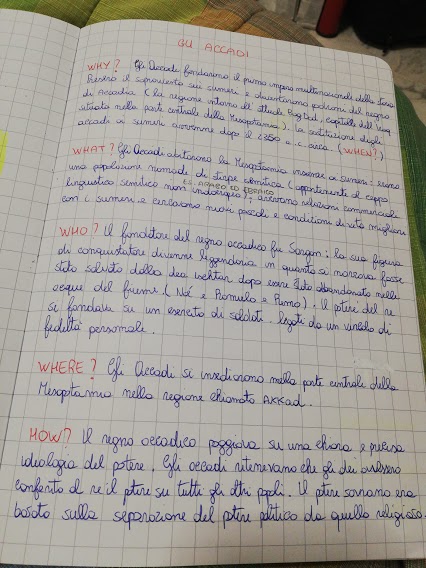 GLI ACCADI
WHY? Gli Accadi fondarono il primo impero multinazionale della storia
Presero il sopravvento sui sumeri e diventarono padroni del regno
di Accadia (la regione intorno all'attuale Bagdad, capitale dell'Iraq
situata nella parte centrale della Mesopotamia). La sostituzione degli
accadi ai sumeri avvenne dopo il 2350 a.c. circa (WHEN?)
WHAT? Gli Accadi abitavano la Mesopotamia insieme ai sumeri: erano
una popolazione nomade di stirpe semitica (appartenente al ceppo
ES. ARABO ED EBRAICO
linguistico semitico non indoeuropeo), avevano relazioni commerciali
con i sumeri e cercavano nuovi pascoli e condizioni di vita migliori
WHO? Il fonditore del regno accadico fu Sargon: la sua figura
di conquistatore divenne leggendaria in quanto si narrava fosse
stato salvato dalla dea Ischtar dopo essere stato abbandonato nelle
acque del fiume (Noé e Romolo e Remo). Il potere del re
si fondava su un esercito di soldati legati da un vincolo di
fedeltà personale.
WHERE? Gli Accadi si insediarono nella parte centrale della
Mesopotamia nella regione chiamata AKKAD.
HOW? Il regno accadico poggiava su una chiara e precisa
ideologia del potere. Gli accadi ritenevano che gli dei avessero
conferito al re il potere su tutti gli altri popoli. Il potere sovrano era
basato sulla separazione del potere politico da quello religioso.